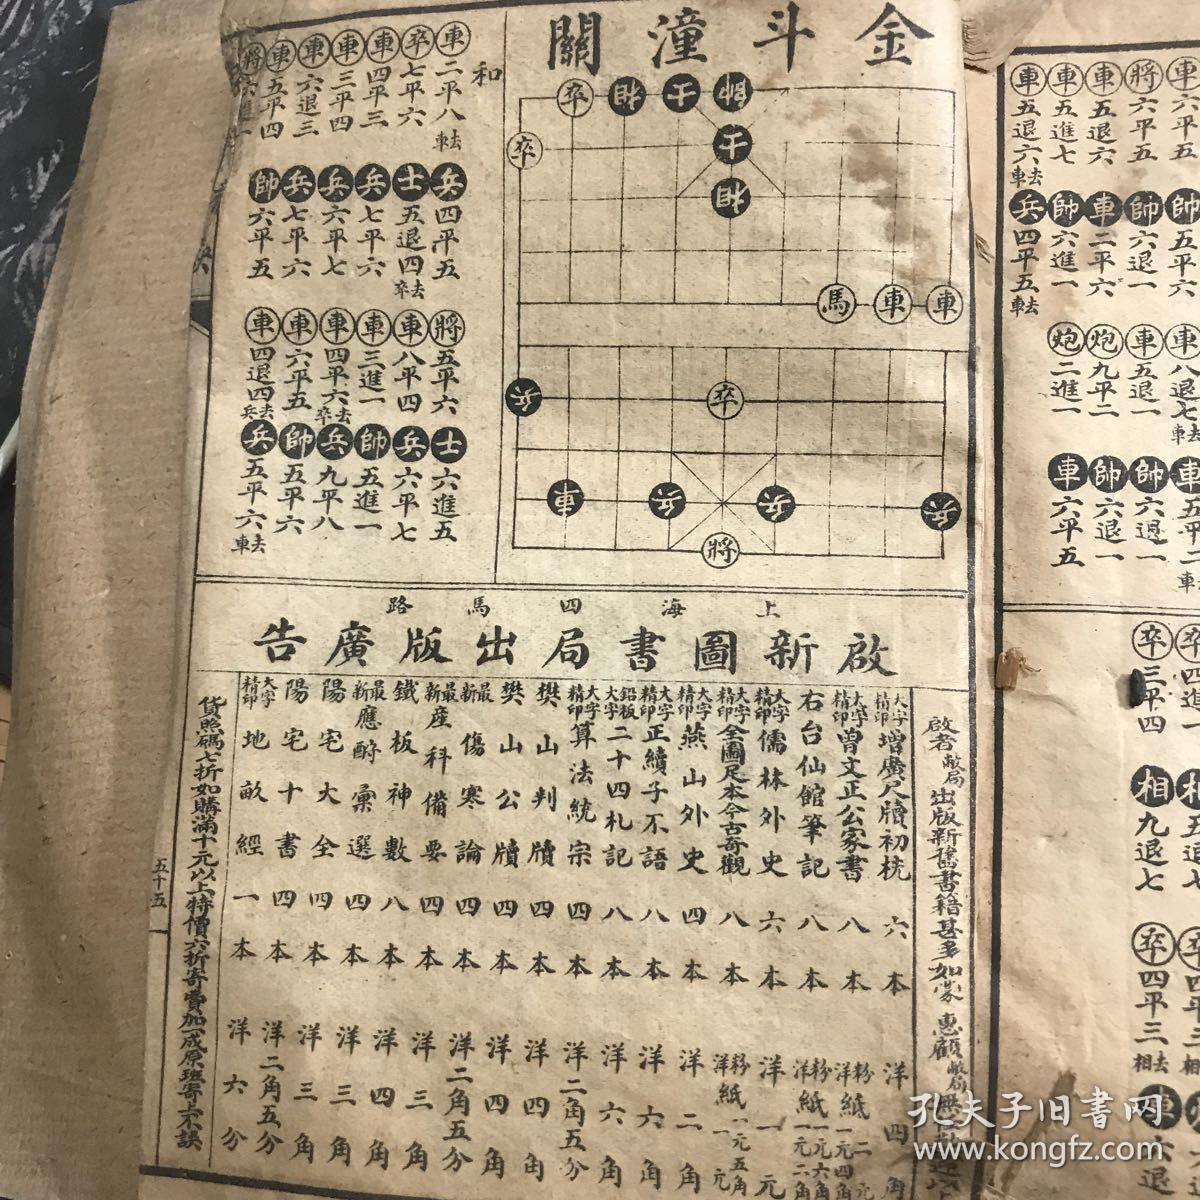 金斗潼關
和
車二平八去車
兵四平五
將五平六
士六進五
卒七平六
士五退四去卒
車八平四
兵六平七
車四平三
兵七平六
車三進一
帥五進一
車三平四
兵六平七
車四平六去卒
兵九平八
車六退三
兵七平六
車六平五
帥五平六
車五平四
帥六平五
車四退四去兵
兵五平六去車
卒
相
士
帥
卒
士
相
馬
車
車
兵
卒
車
兵
兵
兵
將
車六平五
帥五平六
車八退七去車
將六平五
帥六退一
車五退一
帥六退一
車五退六
車二平六
炮九平二
帥六退一
車五進七
帥六進一
炮二進一
車六平五
車五退六去車
兵四平五去車
卒三平四
相九退七
卒四平三去相
上海四馬路
啟新圖書局出版廣告
啟者敝局出版新舊書籍甚多如蒙惠顧敝局
大字精印增廣尺牘初桄六本洋四角
大字精印曾文正公家書八本粉紙二元洋紙一元四角
右台仙館筆記八本粉紙一元六角洋紙一元二角
大字精印儒林外史六本洋一元
大字精印全圖足本今古奇觀八本粉紙一元五角洋一元
大字精印燕山外史四本洋二角
大字精印正續子不語八本洋六角
鉛板大字二十四札記八本洋六角
大字精印算法統宗四本洋二角五分
樊山判牘四本洋四角
樊山公牘四本洋四角
最新傷寒論四本洋二角五分
最新產科備要四本洋三角
鐵板神數八本洋四角
最新應酧彙選四本洋三角
陽宅大全四本洋三角
陽宅十書四本洋二角五分
大字精印地畝經一本洋六分
貨照碼七折如購滿十元以上特價六折寄費加一成原班寄上不誤
五十五
孔夫子旧書网
www.kongfz.com